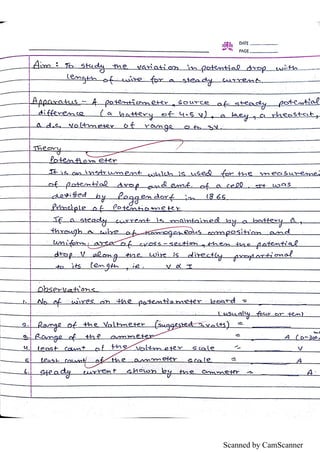 DATE
PAGE
Aim : To study the variation in potential drop with
length of wire for a steady current.
Apparatus - A potentiometer, source of steady potential
difference (a battery of 4.5 V), a key, a rheostat,
a d.c. voltmeter of range 0 to 5V.
Theory
Potentiometer
It is an instrument which is used for the measureme
of potential drop and emf. of a cell. It was
devised by Poggendorf in 1865.
Principle of Potentiometer
If a steady current is maintained by a battery A,
through a wire of homogeneous composition and
uniform area of cross-section, then the potential
drop V along the wire is directly proportional
to its length, ie, V α I
Observations
1. No of wires on the potentiometer board =
(usually four or ten)
2. Range of the Voltmeter (suggested 5 volts) =
3. Range of the ammeter = A
4. Least count of the voltmeter scale = V
5. Least count of the ammeter scale = A
6. Steady current shown by the ammeter = A.
Scanned by CamScanner